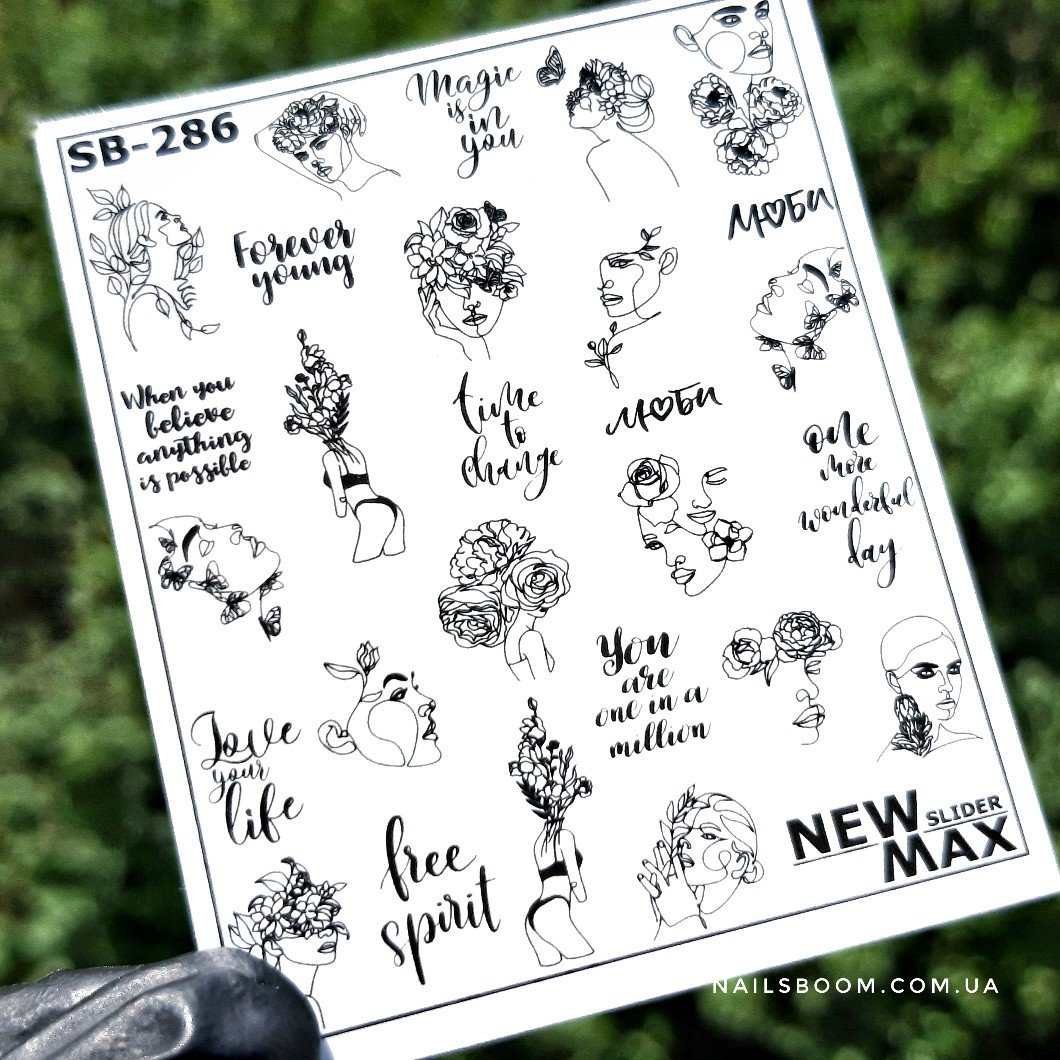 SB-286
Magic
is in
you
Forever
young
люби
When you
believe
anything
is possible
time
to
change
люби
one
more
wonderful
day
You
are
one in a
million
Love
your
life
free
spirit
NEW
SLIDER
MAX
NAILSBOOM.COM.UA